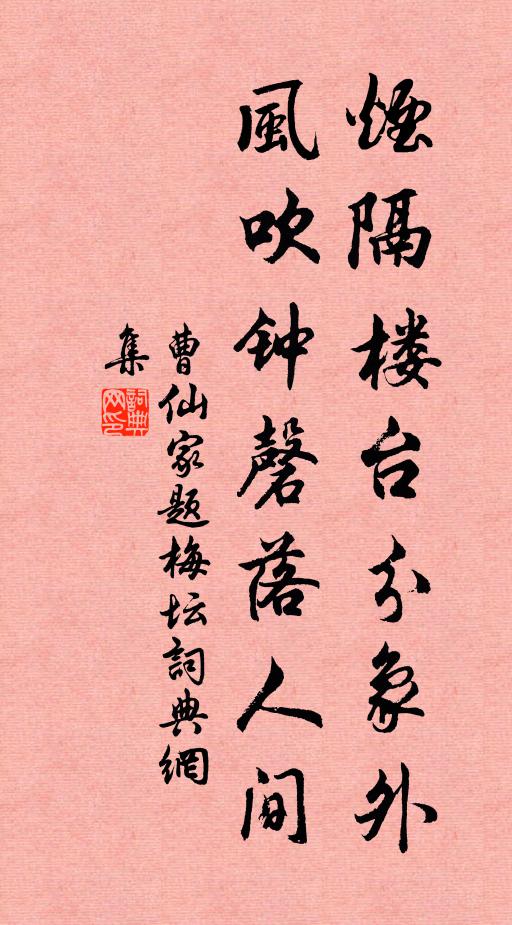 煙隔楼台分象外
風吹钟磬落人间
曹仙家题梅坛詞典網
集
詞典網印